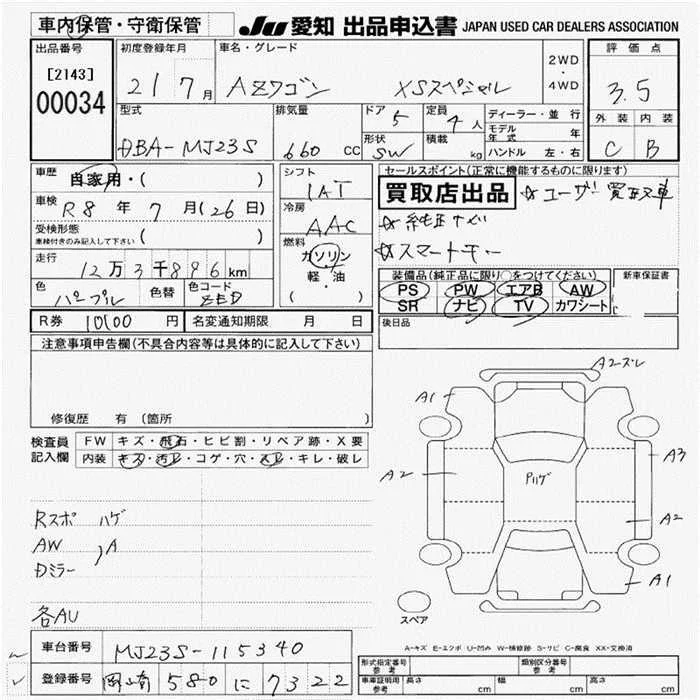 車内保管・守衛保管
JU 愛知 出品申込書 JAPAN USED CAR DEALERS ASSOCIATION
出品番号 初度登録年月 車名・グレード 評価点
[2143]
00034
21 7月 AZワゴン XSスペシャル 2WD・4WD 3.5
型式 排気量 ドア 5 定員 4人 ディーラー・並行 外装 内装
モデル年式 年
DBA-MJ23S 660 CC 形状 SW 積載 kg ハンドル 左・右 C B
車歴 自家用・( ) シフト IAT セールスポイント(正常に機能するものに限ります)
買取店出品 ☆ユーザー買取車
車検 R8年 7月(26日) 冷房 AAC ☆純正ナビ
受検形態 車検付きのみ記入して下さい ( ) 燃料 ガソリン 軽・油 ( ) ☆スマートキー
走行 12万3千896km
装備品(純正品に限り○をつけてください) 新車保証書
色 パープル 色替 色コード ZED
PS PW エアB AW
SR ナビ TV カワシート
R券 10100円 名変通知期限 月 日 後日品
注意事項申告欄(不具合内容等は具体的に記入して下さい)
修復歴 有 (箇所 )
検査員記入欄 FW キズ・飛石・ヒビ割・リペア跡・X要
内装 キズ・汚レ・コゲ・穴・スレ・キレ・破レ
A2ズレ
A1
A2
Pハゲ
A3
A2
A1
Rスポ ハゲ
AW
Dミラー )A
各AU
スペア
A-キズ E-エクボ U-凹み W-補修跡 S-サビ C-腐食 XX-交換済
車台番号 MJ23S-115340
登録番号 岡崎 580 に 7322
形式指定番号 参考 類別区分番号 参考
車庫証明用 参考 長さ cm 幅 cm 高さ cm